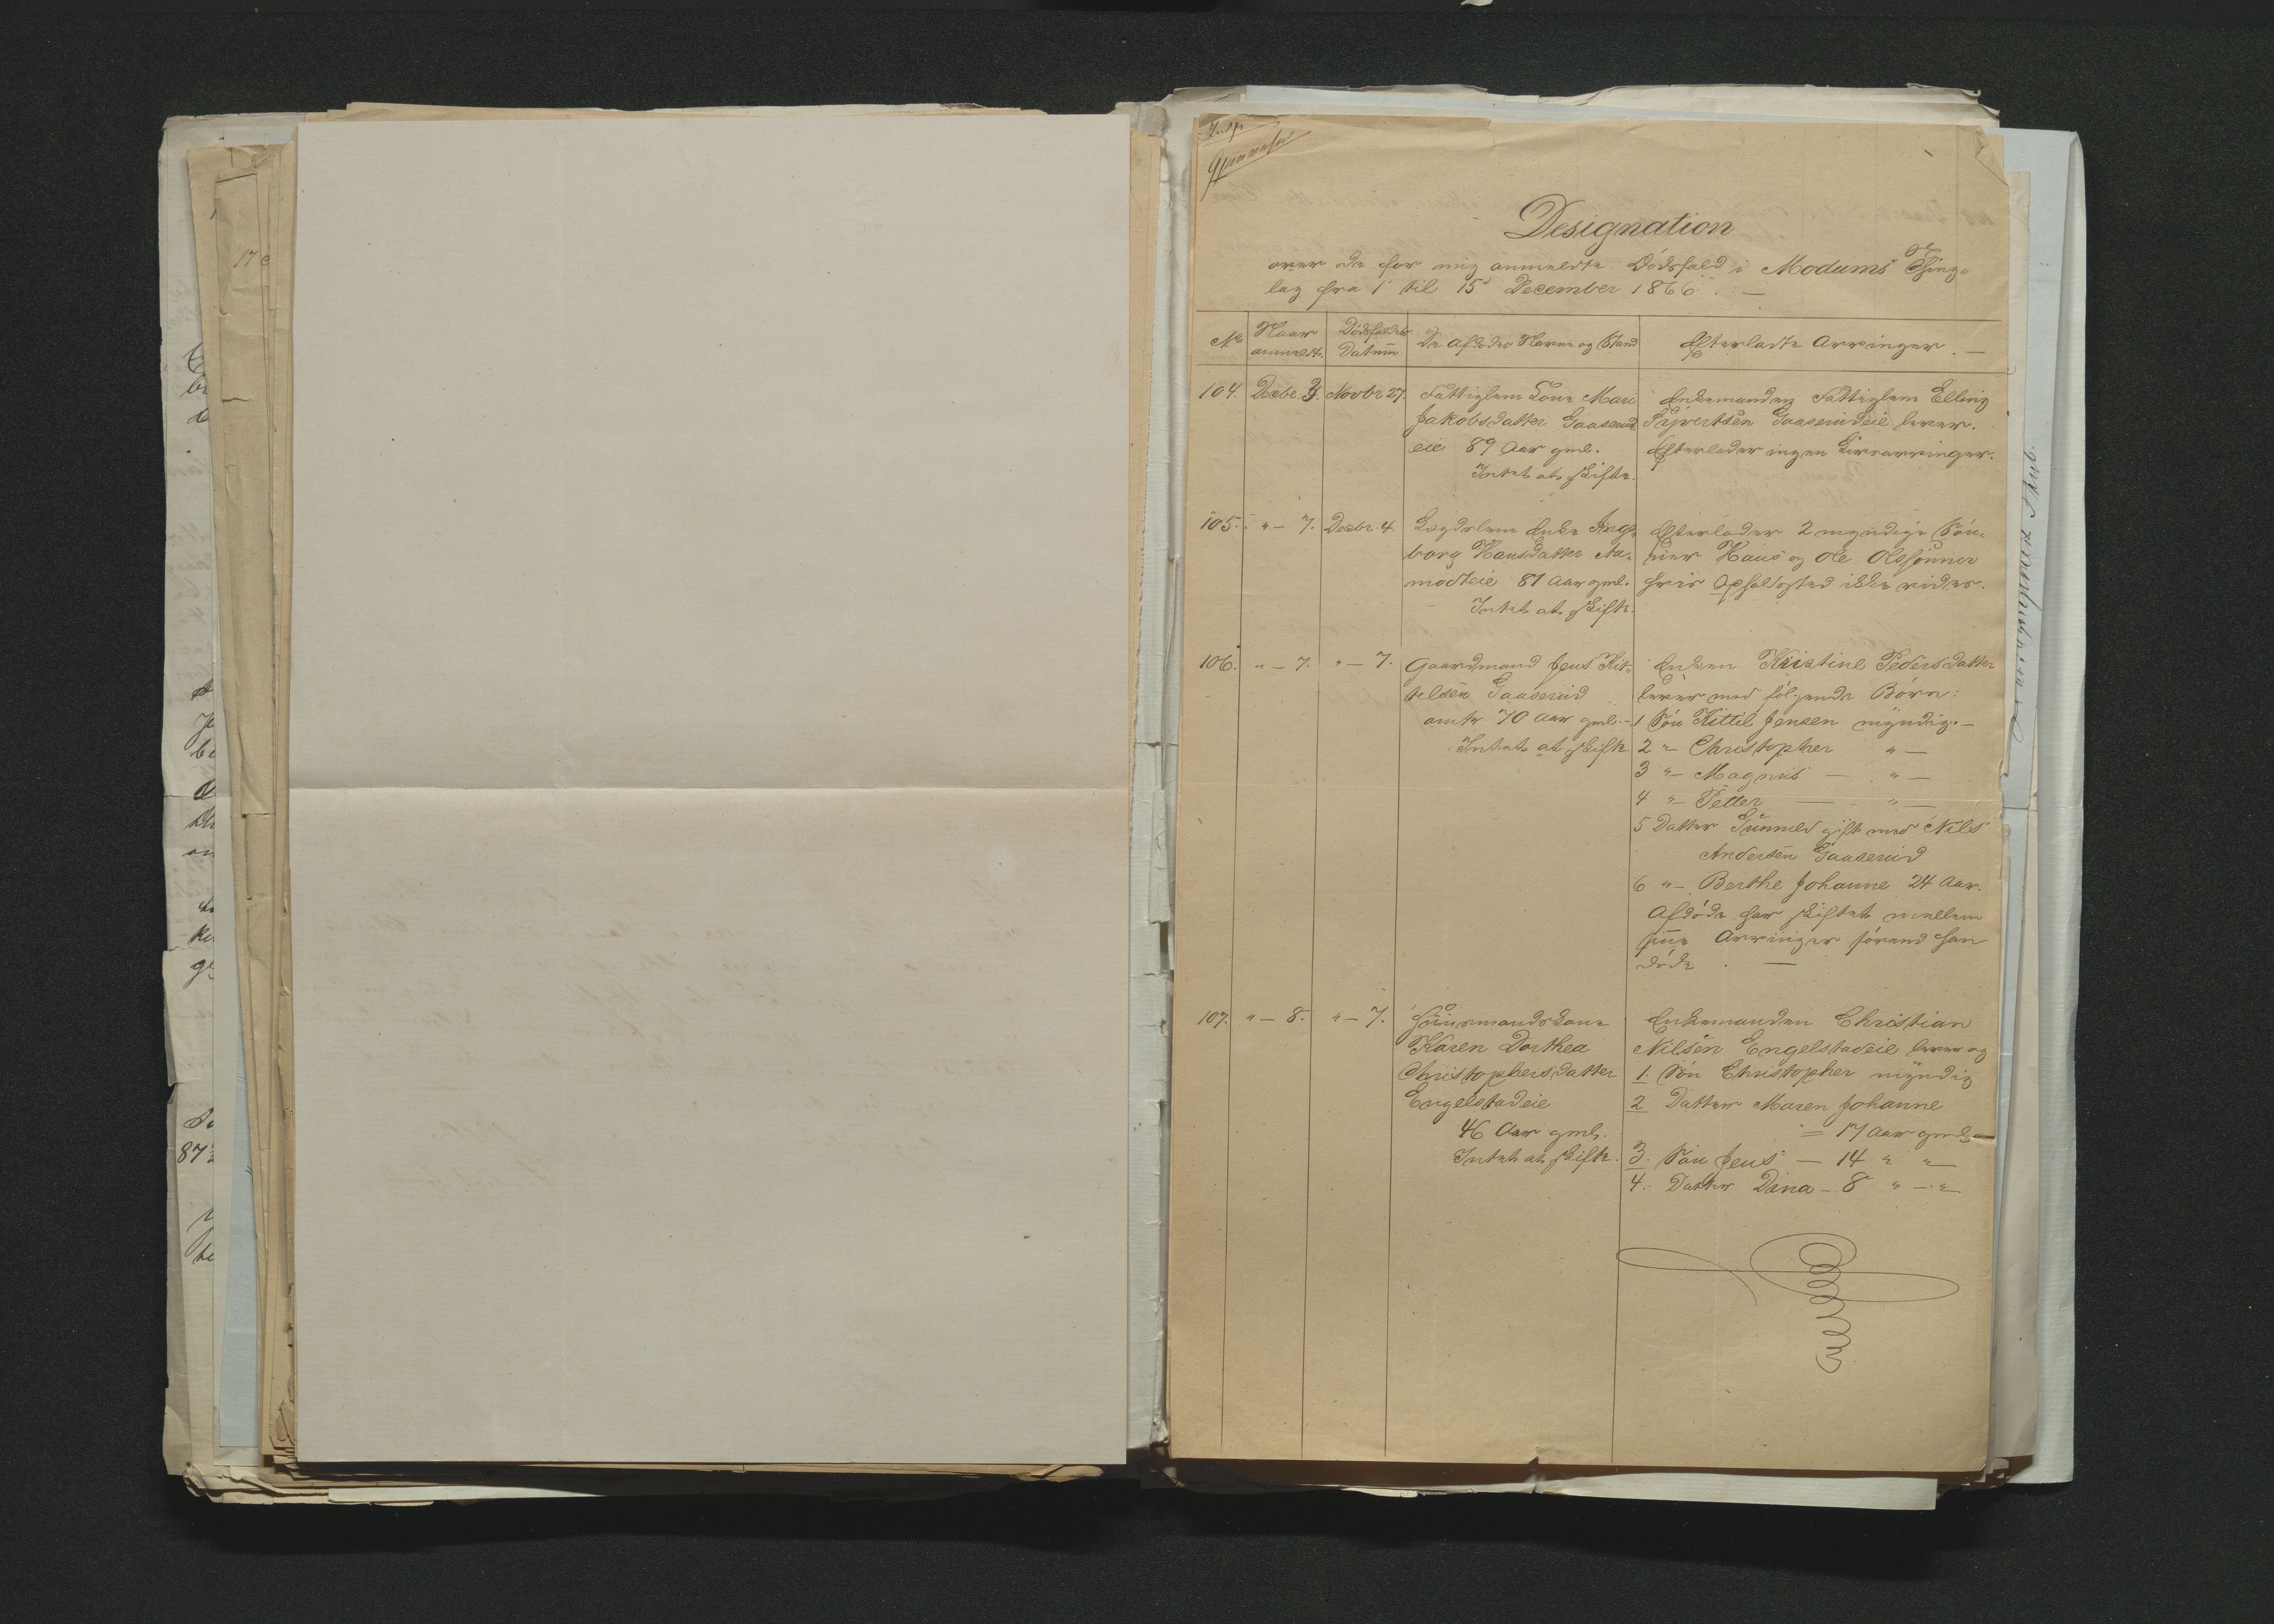 Designation
over de for mig anmeldte Dødsfald i Modums Thing-
lag fra 1 til 15d December 1866. —
No
Naar
anmeldt.
Dødsfaldets
Datum
De Afdødes Navne og Stand
Efterladte Arvinger. —
104.
Decbr. 3.
Novbr 27.
Fattiglem Kone Mari
Jakobsdatter Gaaserud
eie 89 Aar gml.
Intet at skifte.
Enkemanden Fattiglem Elling
Syvertsen Gaaserudeie lever.
Efterlader ingen Livsarvinger.
105.
" — 7.
Decbr. 4.
Lægdslem Enke Inge-
borg Hansdatter Aa-
modteie 81 Aar gml.
Intet at skifte.
Efterlader 2 myndige Søn-
ner Hans og Ole Olssønner
hvis Opholdsted ikke vides.
106.
" — 7.
" — 7.
Gaardmand Jens Kit-
telsen Gaaserud
omtr 70 Aar gml. —
Intet at skifte
Enken Kristine Pedersdatter
lever med følgende Børn:
1 Søn Kittil Jensen myndig. —
2 " — Christopher " —
3 " — Magnus — " —
4 " — Petter — " —
5 Datter Gunnild gift med Nils
Andersen Gaaserud
6 " — Berthe Johanne 24 Aar.
Afdøde har skiftet mellem
sine Arvinger førend han
døde. —
107.
" — 8.
" — 7.
Huusmandskone
Karen Dorthea
Christophersdatter
Engelstadeie
46 Aar gml.
Intet at skifte.
Enkemanden Christian
Nilsen Engelstadeie lever og
1. Søn Christopher myndig
2 Datter Maren Johanne
= 17 Aar gml —
3. Søn Jens — 14 " "—
4. Datter Dina — 8 " — "—